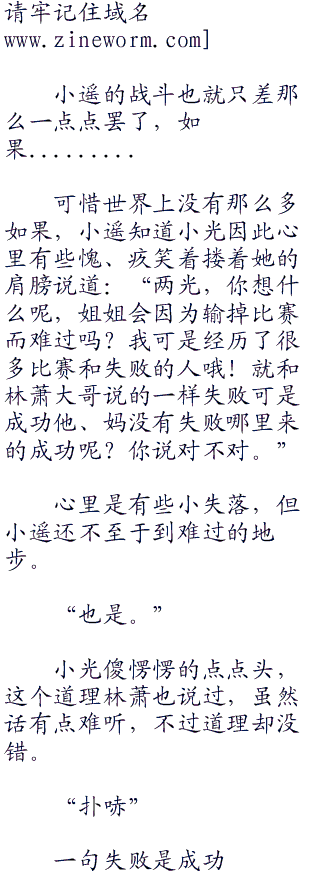 请牢记住域名
www.zineworm.com]
小遥的战斗也就只差那
么一点点罢了，如
果.........
可惜世界上没有那么多
如果，小遥知道小光因此心
里有些愧、疚笑着搂着她的
肩膀说道：“两光，你想什
么呢，姐姐会因为输掉比赛
而难过吗？我可是经历了很
多比赛和失败的人哦！就和
林萧大哥说的一样失败可是
成功他、妈没有失败哪里来
的成功呢？你说对不对。”
心里是有些小失落，但
小遥还不至于到难过的地
步。
“也是。”
小光傻愣愣的点点头，
这个道理林萧也说过，虽然
话有点难听，不过道理却没
错。
“扑哧”
一句失败是成功